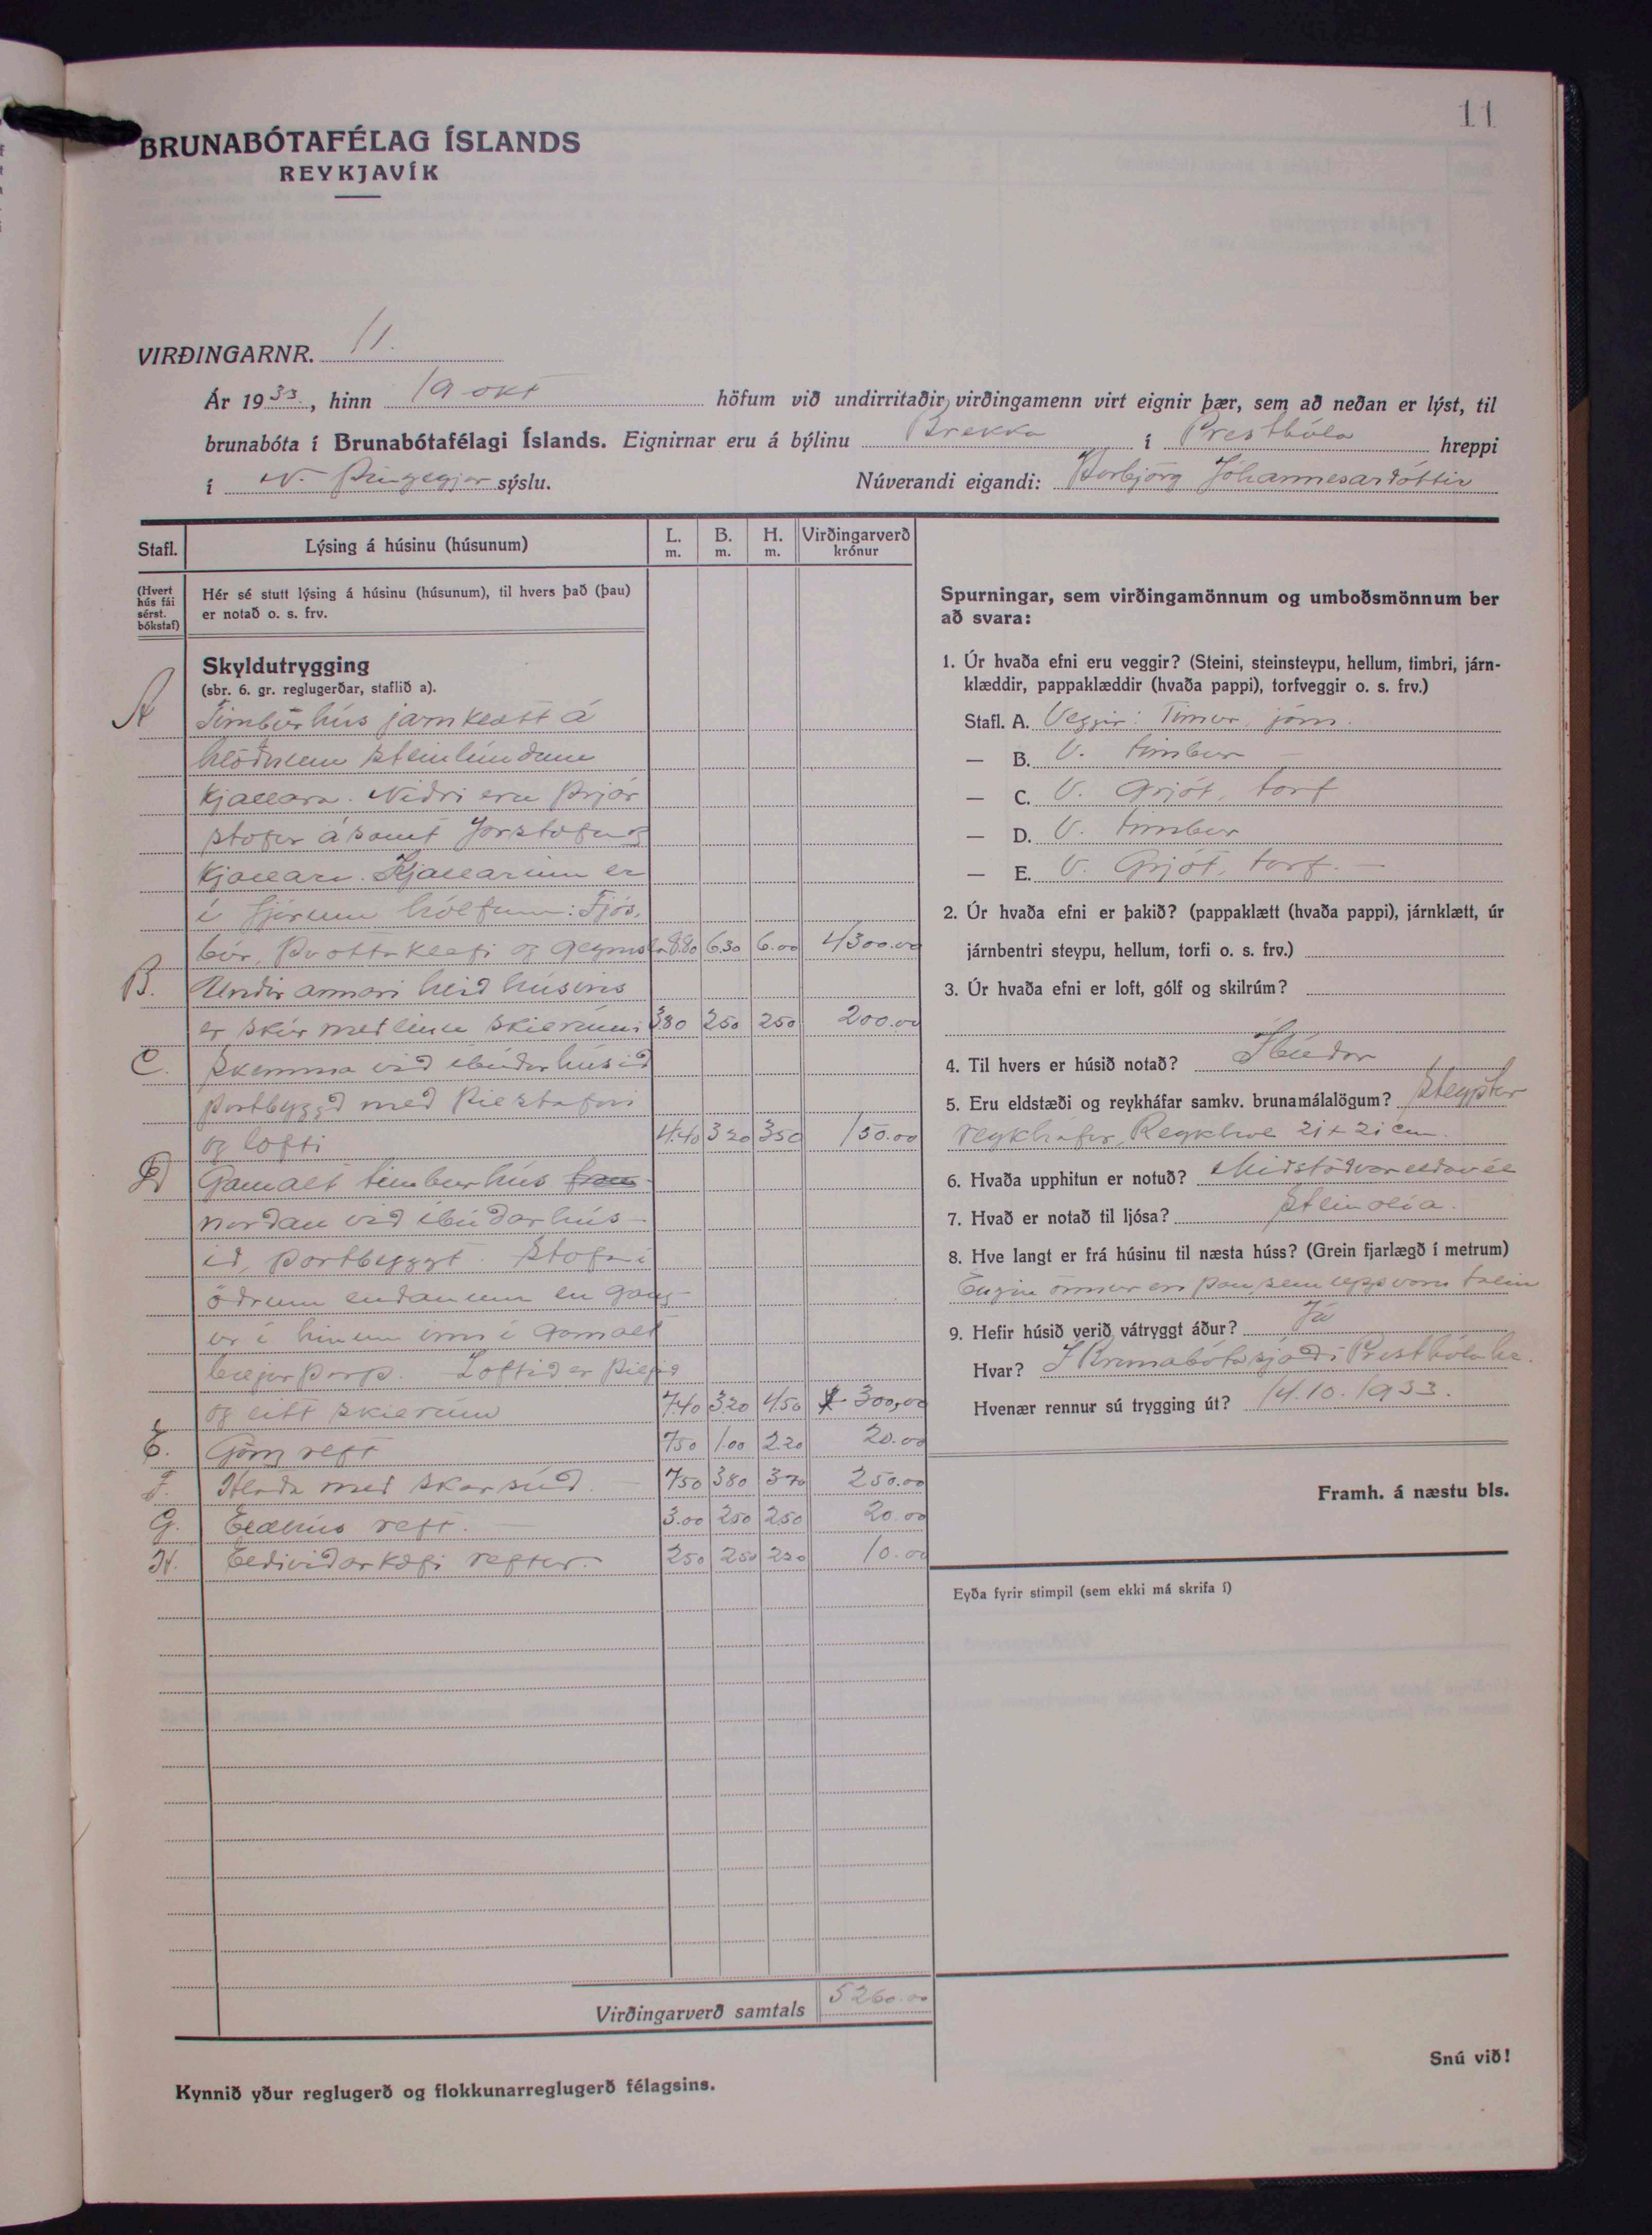 11
BRUNABÓTAFÉLAG ÍSLANDS
REYKJAVÍK
VIRÐINGARNR. 11.
Ár 1933, hinn 19 okt höfum við undirritaðir virðingamenn virt eignir þær, sem að neðan er lýst, til
brunabóta í Brunabótafélagi Íslands. Eignirnar eru á býlinu Brekka í Presthóla hreppi
í N. Þingeyjar sýslu. Núverandi eigandi: Þorbjörg Jóhannesardóttir
Stafl. Lýsing á húsinu (húsunum) L. m. B. m. H. m. Virðingarverð krónur
(Hvert hús fái sérst. bókstaf)
Hér sé stutt lýsing á húsinu (húsunum), til hvers það (þau)
er notað o. s. frv.
Skyldutrygging
(sbr. 6. gr. reglugerðar, staflið a).
A Timburhús jarnklætt á
hlöðnum steinlímdum
Kjallara. Niðri eru þrjár
stofur ásamt forstofu og
Kjallara. Kjallarinn er
í fjórum hólfum: Fjós,
búr, þvottaklefi og geymsla 8.80 6.30 6.00 4300.00
B. Undir annari hlid húsins
er skúr með einu skilrúmi 3.80 250 250 200.00
C. Skemma við íbúdarhúsið
portbyggð með þilstafni
og lofti 4.40 3.20 350 150.00
D Gamalt timburhús
nordan við íbúðarhús-
ið, portbyggt. Stofa í
öðrum endanum en gang-
ur í hinum inn í gamalt
bæjarþorp. Loftið er þiljað
og eitt skilrúm 7.40 3.20 4.50 300,00
E. Göng reft 750 1.00 2.20 20.00
F. Hlaða með skarsúð. 750 380 370 250.00
G. Eldhús reft. 3.00 250 250 20.00
H. Eldiviðarkofi reftur. 250 250 220 10.00
Virðingarverð samtals 5260.00
Kynnið yður reglugerð og flokkunarreglugerð félagsins.
Spurningar, sem virðingamönnum og umboðsmönnum ber
að svara:
1. Úr hvaða efni eru veggir? (Steini, steinsteypu, hellum, timbri, járn-
klæddir, pappaklæddir (hvaða pappi), torfveggir o. s. frv.)
Stafl. A. Veggir: Timur, járn.
— B. V. timbur —
— C. V. Grjót, torf
— D. V. timbur
— E. V. Grjót, torf. —
2. Úr hvaða efni er þakið? (pappaklætt (hvaða pappi), járnklætt, úr
járnbentri steypu, hellum, torfi o. s. frv.)
3. Úr hvaða efni er loft, gólf og skilrúm?
4. Til hvers er húsið notað? Íbúdar
5. Eru eldstæði og reykháfar samkv. brunamálalögum? Steyptur
reykháfur, Reykhol 21 x 21 cm.
6. Hvaða upphitun er notuð? Miðstöðvareldavél
7. Hvað er notað til ljósa? Steinolía.
8. Hve langt er frá húsinu til næsta húss? (Grein fjarlægð í metrum)
Engin önnur en þau, sem upp voru talin
9. Hefir húsið verið vátryggt áður? Já
Hvar? Í Brunabótasjóði Presthólahr.
Hvenær rennur sú trygging út? 14.10.1933.
Framh. á næstu bls.
Eyða fyrir stimpil (sem ekki má skrifa í)
Snú við!